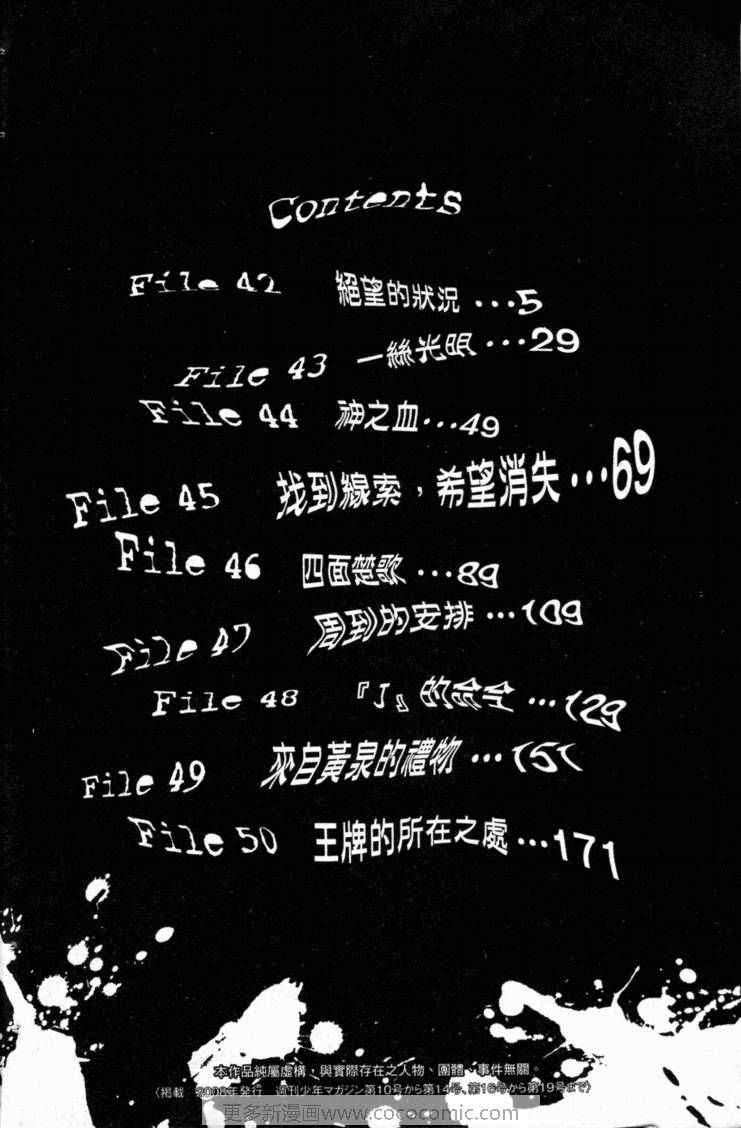 Contents
File 42 絕望的狀況 ...5
File 43 一絲光眼 ...29
File 44 神之血...49
File 45 找到線索，希望消失...69
File 46 四面楚歌 ...89
File 47 周到的安排 ...109
File 48 『J』的命令 ...129
File 49 來自黃泉的禮物 ...151
File 50 王牌的所在之處...171
本作品純屬虛構、與實際存在之人物、團體、事件無關。
〈掲載　2008年発行　週刊少年マガジン第10号から第14号、第16号から第19号まで〉
更多新漫画www.cococomic.com